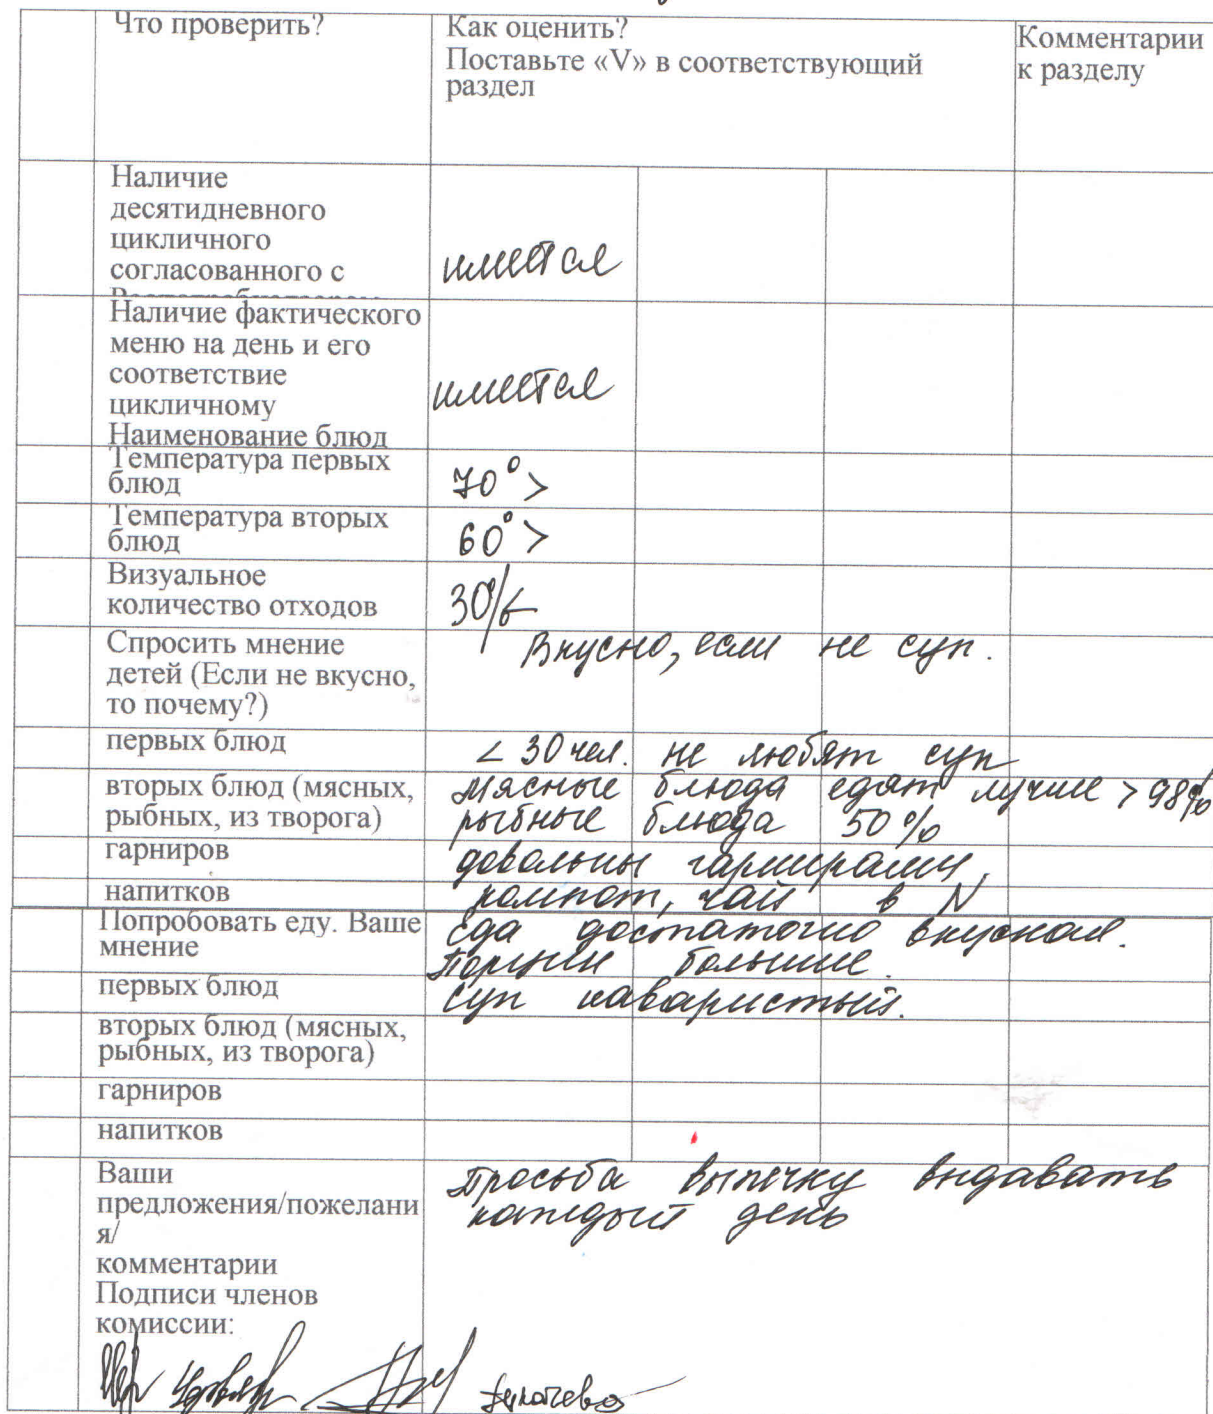 Что проверить?
Как оценить?
Поставьте «V» в соответствующий
раздел
Комментарии
к разделу
Наличие
десятидневного
цикличного
согласованного с
имеется
Наличие фактического
меню на день и его
соответствие
цикличному
Наименование блюд
имеется
Температура первых
блюд
70° >
Температура вторых
блюд
60° >
Визуальное
количество отходов
30%
Спросить мнение
детей (Если не вкусно,
то почему?)
Вкусно, если не суп.
первых блюд
< 30 чел. не любят суп
вторых блюд (мясных,
рыбных, из творога)
мясные блюда едят лучше > 98%
рыбные блюда 50%
гарниров
довольны гарнирами,
напитков
компот, чай в N
Попробовать еду. Ваше
мнение
Еда достаточно вкусная.
Порции большие.
первых блюд
Суп наваристый.
вторых блюд (мясных,
рыбных, из творога)
гарниров
напитков
Ваши
предложения/пожелани
я/
комментарии
Просьба выпечку выдавать
каждый день
Подписи членов
комиссии: